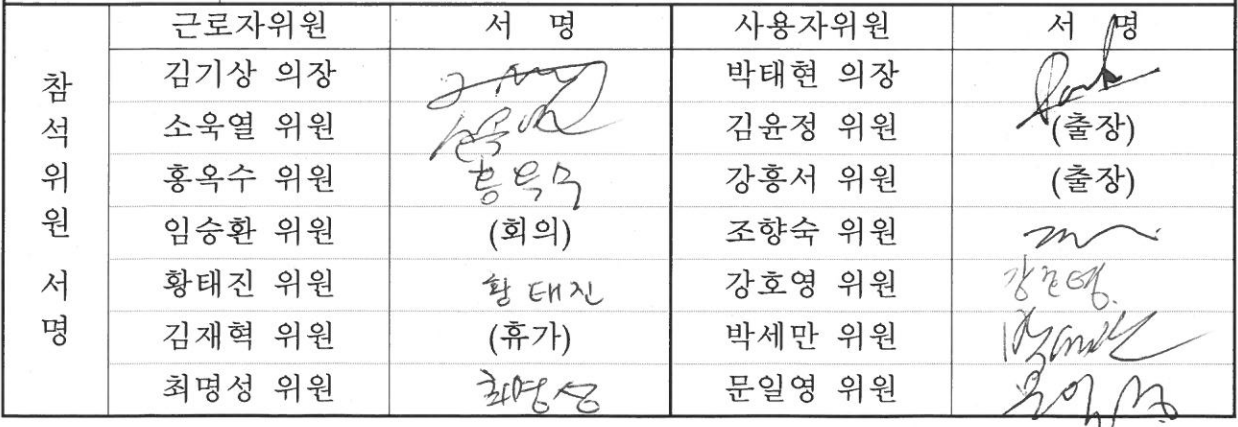 근로자위원 서 명 사용자위원 서 명
참석위원 서명
김기상 의장 박태현 의장
소욱열 위원 김윤정 위원 (출장)
홍옥수 위원 홍옥수 강흥서 위원 (출장)
임승환 위원 (회의) 조향숙 위원
황태진 위원 황태진 강호영 위원 강호영
김재혁 위원 (휴가) 박세만 위원
최명성 위원 최명성 문일영 위원 문일영